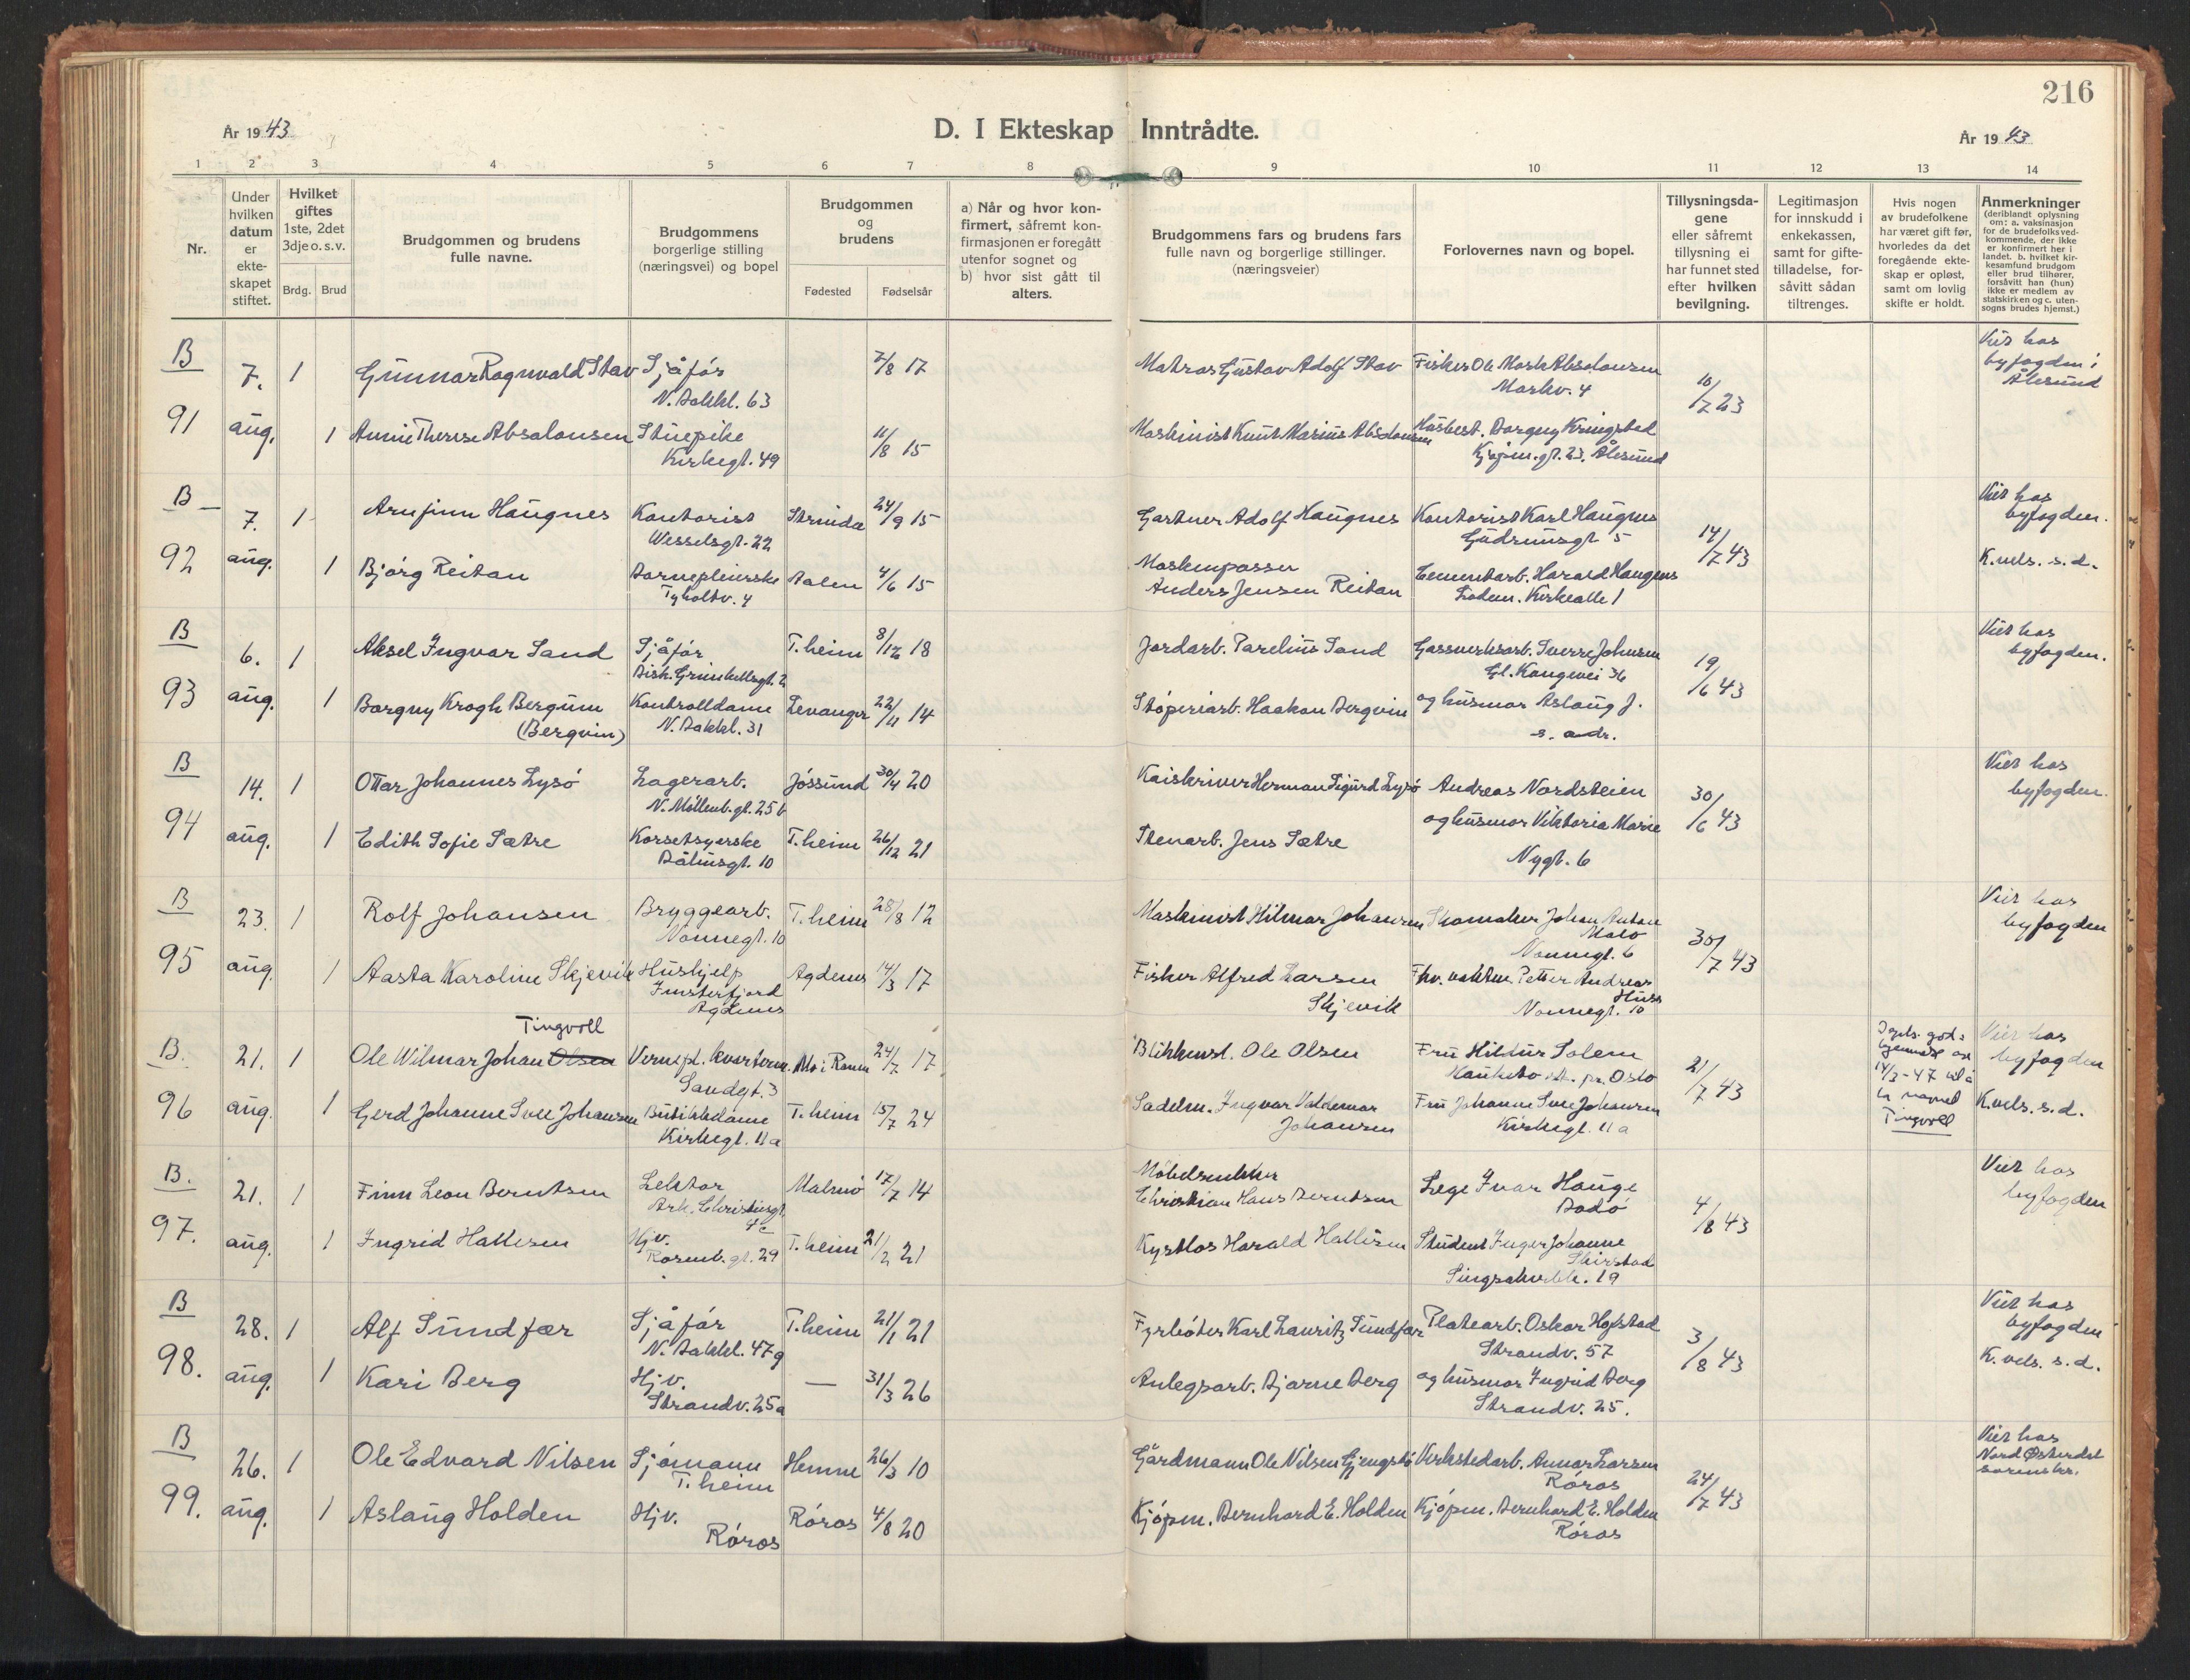 216
År 1943
D. I Ekteskap Inntrådte.
År 1943
1 2 3 4 5 6 7 8 9 10 11 12 13 14
Nr.
Under hvilken datum er ekte-skapet stiftet.
Hvilket giftes 1ste, 2det 3dje o. s. v.
Brdg. Brud
Brudgommen og brudens fulle navne.
Brudgommens borgerlige stilling (næringsvei) og bopel
Brudgommen og brudens
Fødested Fødselsår
a) Når og hvor kon-firmert, såfremt kon-firmasjonen er foregått utenfor sognet og b) hvor sist gått til alters.
Brudgommens fars og brudens fars fulle navn og borgerlige stillinger. (næringsveier)
Forlovernes navn og bopel.
Tillysningsda-gene eller såfremt tillysning ei har funnet sted efter hvilken bevilgning.
Legitimasjon for innskudd i enkekassen, samt for gifte-tilladelse, for-såvitt sådan tiltrenges.
Hvis nogen av brudefolkene har været gift før, hvorledes da det foregående ekte-skap er opløst, samt om lovlig skifte er holdt.
Anmerkninger (deriblandt oplysning om: a. vaksinasjon for de brudefolks ved-kommende, der ikke er konfirmert her i landet. b. hvilket kir-kesamfund brudgom eller brud tilhører, forsåvitt han (hun) ikke er medlem av statskirken og c. uten-sogns brudes hjemst.)
B
7. 1 Gunnar Ragnvald Stav Sjåfør 7/8 17 Matros Gustav Adolf Stav Fisker Ole Mask Absalonsen 10/7 23 Viet hos
N. Bakkl. 63 Maskv. 4 byfogden i
Ålesund
91 aug. 1 Annie Therese Absalonsen Stuepike 11/8 15 Maskinist Knut Marius Absalonsen Husbest. Dagny Kringstad
Kirkegt. 49 Kjøpm.gt. 23. Ålesund
B
7. 1 Arnfinn Haugnes Kontorist Strinda 24/9 15 Gartner Adolf Haugnes Kontorist Karl Haugnes 14/7 43 Viet hos
Wesselsgt. 22 Gudrunsgt 5 byfogden.
92 aug. 1 Bjørg Reitan Barnepleierske Aalen 4/6 15 Maskinpasser Cementarb. Harald Haugnes K.vels. s.d.
Tyholtv. 4 Anders Jensen Reitan Ladem. Kirkealle 1
B
6. 1 Aksel Ingvar Sand Sjåfør T.heim 8/12 18 Jordarb. Parelius Sand Gassverksarb. Sverre Johnsen 19/6 43 Viet hos
Bisk. Grimkellsgt. 2 Gl. Kongevei 36 byfogden.
93 aug. 1 Borgny Krogh Bergum Kontrolldame Levanger 22/11 14 Støperiarb. Haakon Bergvin og husmor Aslaug J.
(Bergvin) N. Bakkl. 31 s. adr.
B
14. 1 Ottar Johannes Lysø Lagerarb. Jøssund 30/4 20 Kaiskriver Herman Sigurd Lysø Andreas Nordsteien 30/6 43 Viet hos
N. Møllenb.gt. 25 b og husmor Viktoria Marie byfogden.
94 aug. 1 Edith Sofie Sætre Korsetsyerske T.heim 26/12 21 Stenarb. Jens Sætre Nygt. 6
Båhusgt. 10
B
23. 1 Rolf Johansen Bryggearb. T.heim 28/8 12 Maskinist Hilmar Johansen Skomaker Johan Anton Malo 30/7 43 Viet hos
Nonnegt. 10 Nonnegt. 6 byfogden
95 aug. 1 Aasta Karoline Skjevik Hushjelp Agdenes 14/3 17 Fisker Alfred Larsen Fhv. vaktm. Petter Andreas Huss
Imsterfjord Skjevik Nonnegt. 10
Agdenes
Tingvoll
B. 21. 1 Ole Wilmar Johan Olsen Vernepl. kvarterm. Mo i Rana 24/7 17 Blikkensl. Ole Olsen Fru Hildur Solem 21/7 43 Viet hos
Sandgt. 3 Hauketo st. pr. Oslo 14/3-47 byfogden
96 aug. 1 Gerd Johanne Svee Johansen Butikkdame T.heim 15/7 24 Sadelm. Ingvar Valdemar Fru Johanne Svee Johansen navnet K.vels. s.d.
Kirkegt. 11 a Johansen Kirkegt. 11 a Tingvoll
B.
21. 1 Finn Leon Berntsen Lektor Malmø 17/7 14 Møbelsnekker Lege Ivar Hauge 4/8 43 Viet hos
Ark. Christiesgt. 4c Christian Hans Berntsen Bodø byfogden
97. aug. 1 Ingrid Hallesen Hjv. T.heim 21/2 21 Kystlos Harald Hallesen Student Inger Johanne
Rosenb.gt. 29 Skirstad
Singsakerbk. 19
B
28. 1 Alf Sundfær Sjåfør T.heim 21/1 21 Fyrbøter Karl Lauritz Sundfær Platearb. Oskar Hofstad 3/8 43 Viet hos
N. Bakkl. 47 g Strandv. 57 byfogden
98. aug. 1 Kari Berg Hjv. — 31/3 26 Anlegsarb. Bjarne Berg og husmor Ingrid Berg K.vels. s.d.
Strandv. 25 a Strandv. 25.
B
26. 1 Ole Edvard Nilsen Sjømann Hemne 26/3 10 Gårdmann Ole Nilsen Gjengstø Verkstedarb. Annar Larsen 24/7 43 Viet hos
T.heim Røros Nord Østerdal sorenskr.
99. aug. 1 Aslaug Holden Hjv. Røros 4/8 20 Kjøpm. Bernhard E. Holden Kjøpm. Bernhard E. Holden
Røros Røros